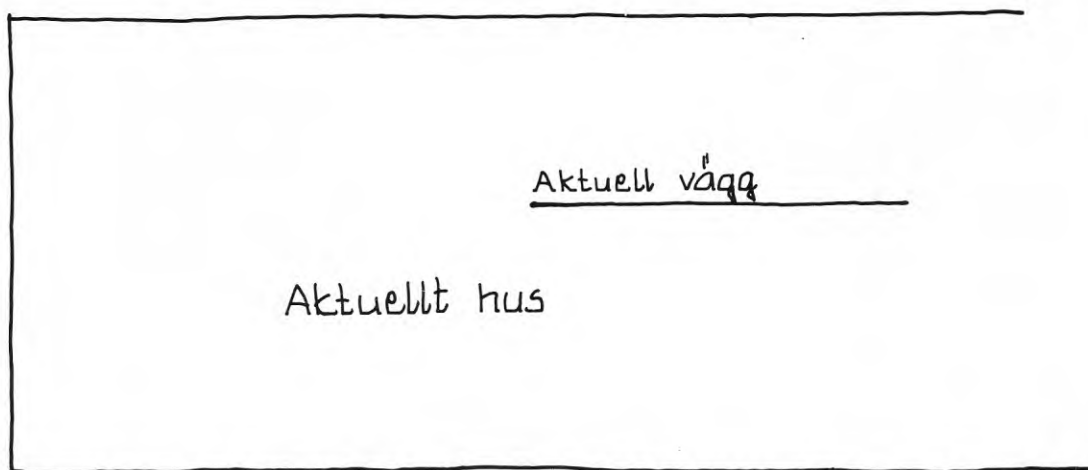 Aktuell vägg
Aktuellt hus